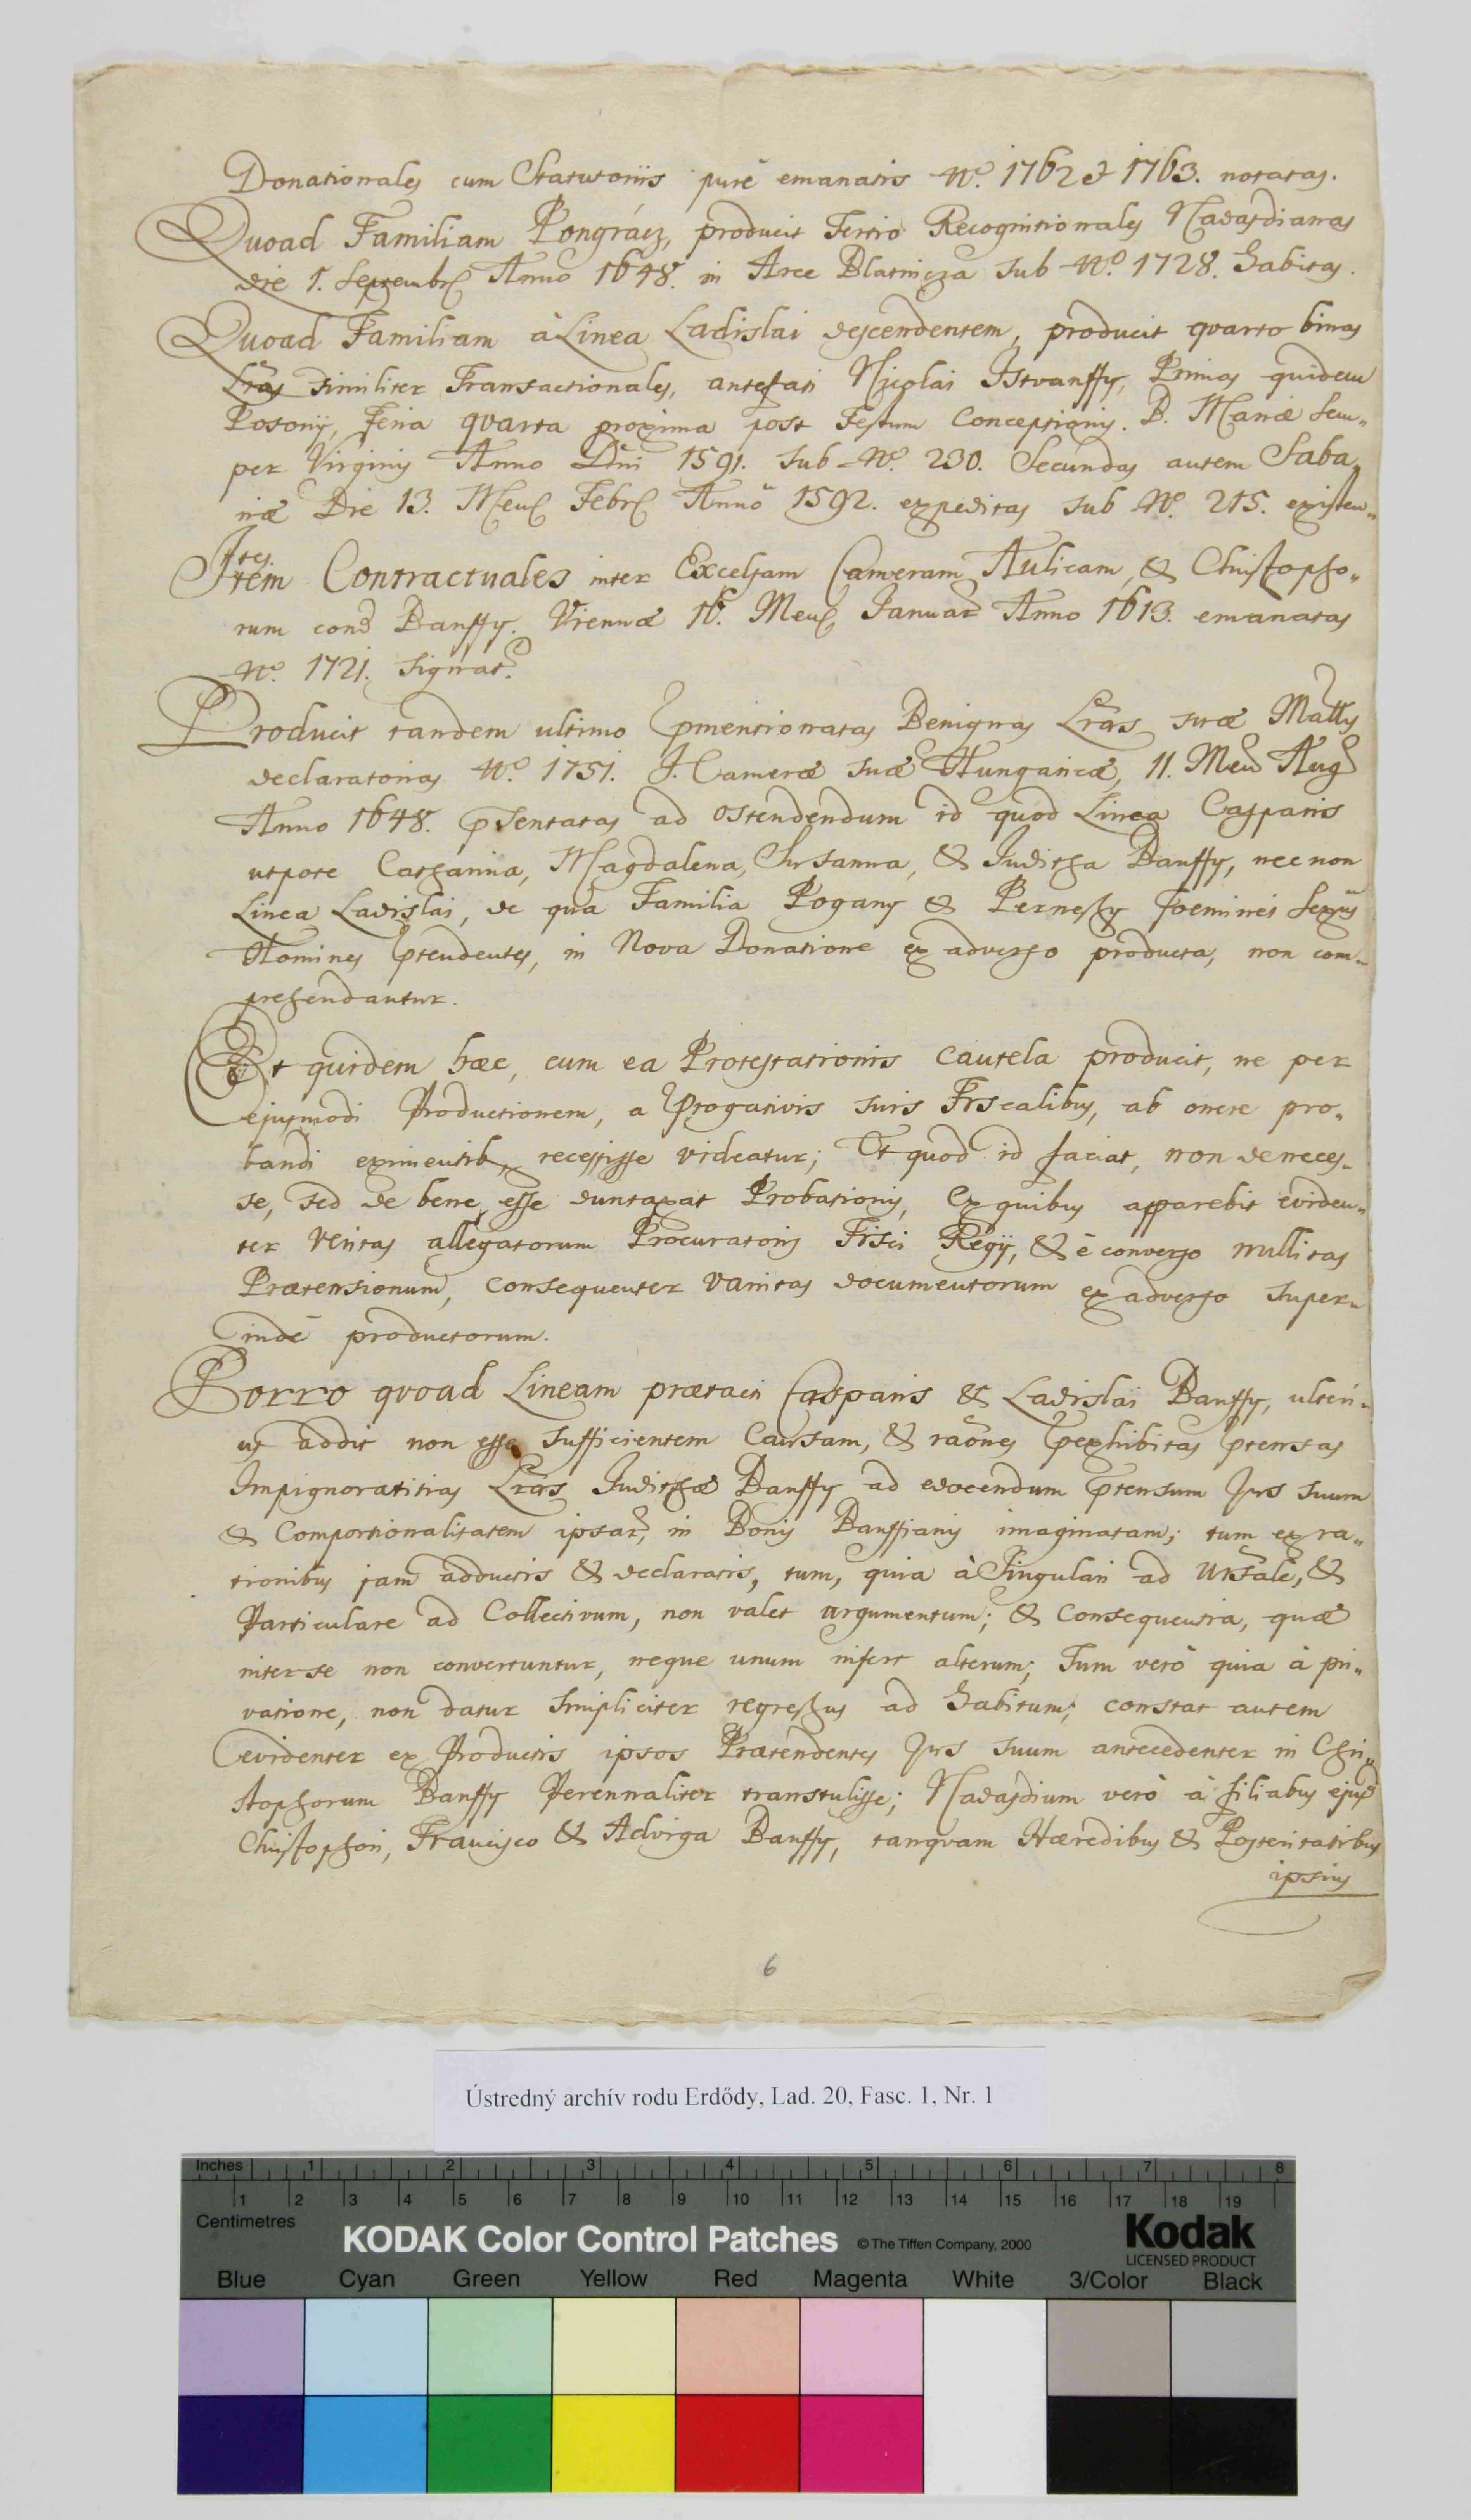 Donationales cum Statutoriis purè emanatis No. 1762 et 1763. notatas.
Quoad Familiam Pongrácz, producit Tertio Recognitionales Nadasdianas
die 1. Septembr Anno 1648. in Arce Blatnicza sub No. 1728. habitas.
Quoad Familiam à Linea Ladislai descendentem, producit quarto binas
Lras similiter Transactionales, antefati Nicolai Istvanffy, Primas quidem
Posonÿ, feria quarta proxima post Festum Conceptionis. B. Mariæ Sem„
per Virginis Anno Dni 1591. sub No. 230. Secundas autem Saba„
riæ Die 13. Mens Febr Anno 1592. expeditas sub No. 215. existen„
tes.
Item Contractuales inter Excelsam Cameram Aulicam, & Christopho„
rum cond Banffy. Viennæ 16. Mens Januar Anno 1613. emanatas
No. 1721. signat.
Producit tandem ultimo pmentionatas Benignas Lras suæ Mattis
declaratorias No. 1751. I. Cameræ suæ Hungaricæ, 11. Men Aug
Anno 1648. psentatas ad ostendendum id quod Linea Casparis
utpote Catharina, Magdalena, Susanna, & Juditha Banffy, nec non
Linea Ladislai, de qua Familia Pogany & Pernessy foeminei sexus
Homines ptendentes, in Nova Donatione ex adverso producta, non com„
prehendantur.
Et quidem hæc, cum ea Protestationis cautela producit, ne per
ejusmodi Productionem, a Progativis suis Fiscalibus, ab onere pro„
bandi eximentib, recessisse videatur; Et quod id faciat, non de neces„
se, sed de bene esse duntaxat Probationis, Ex quibus apparebit eviden„
ter Veritas allegatorum Procuratoris Fisci Regÿ, & è converso nullitas
Prætensionum, consequenter vanitas documentorum ex adverso super„
indè productorum.
Porro quoad Lineam prætacti Casparis & Ladislai Banffy, ulteri„
us addit non esse sufficientem Causam, & raones pexhibitas ptensas
Impignoratitias Lras Judithæ Banffy ad edocendum ptensum Jus suum
& Comportionalitatem ipsar, in Bonis Banffianis imaginatam; tum ex ra„
tionibus jam adductis & declaratis, tum, quia à Singulari ad Unsale, &
Particulare ad Collectivum, non valet argumentum; & Consequentia, quæ
inter se non convertuntur, neque unum infert alterum; Tum verò quia à pri„
vatione, non datur simpliciter regressus ad habitum; constat autem
evidenter ex Productis ipsos Prætendentes Jus suum antecedenter in Chri„
stophorum Banffy Perennaliter transtulisse; Nadasdium verò à filiabus ejusd
Christophori, Francisco & Advirga Banffy, tanquam Hæredibus & Posteritatibus
ipsius
6
Ústredný archív rodu Erdődy, Lad. 20, Fasc. 1, Nr. 1
Inches 1 2 3 4 5 6 7 8
1 2 3 4 5 6 7 8 9 10 11 12 13 14 15 16 17 18 19
Centimetres
KODAK Color Control Patches © The Tiffen Company, 2000 Kodak
LICENSED PRODUCT
Blue Cyan Green Yellow Red Magenta White 3/Color Black